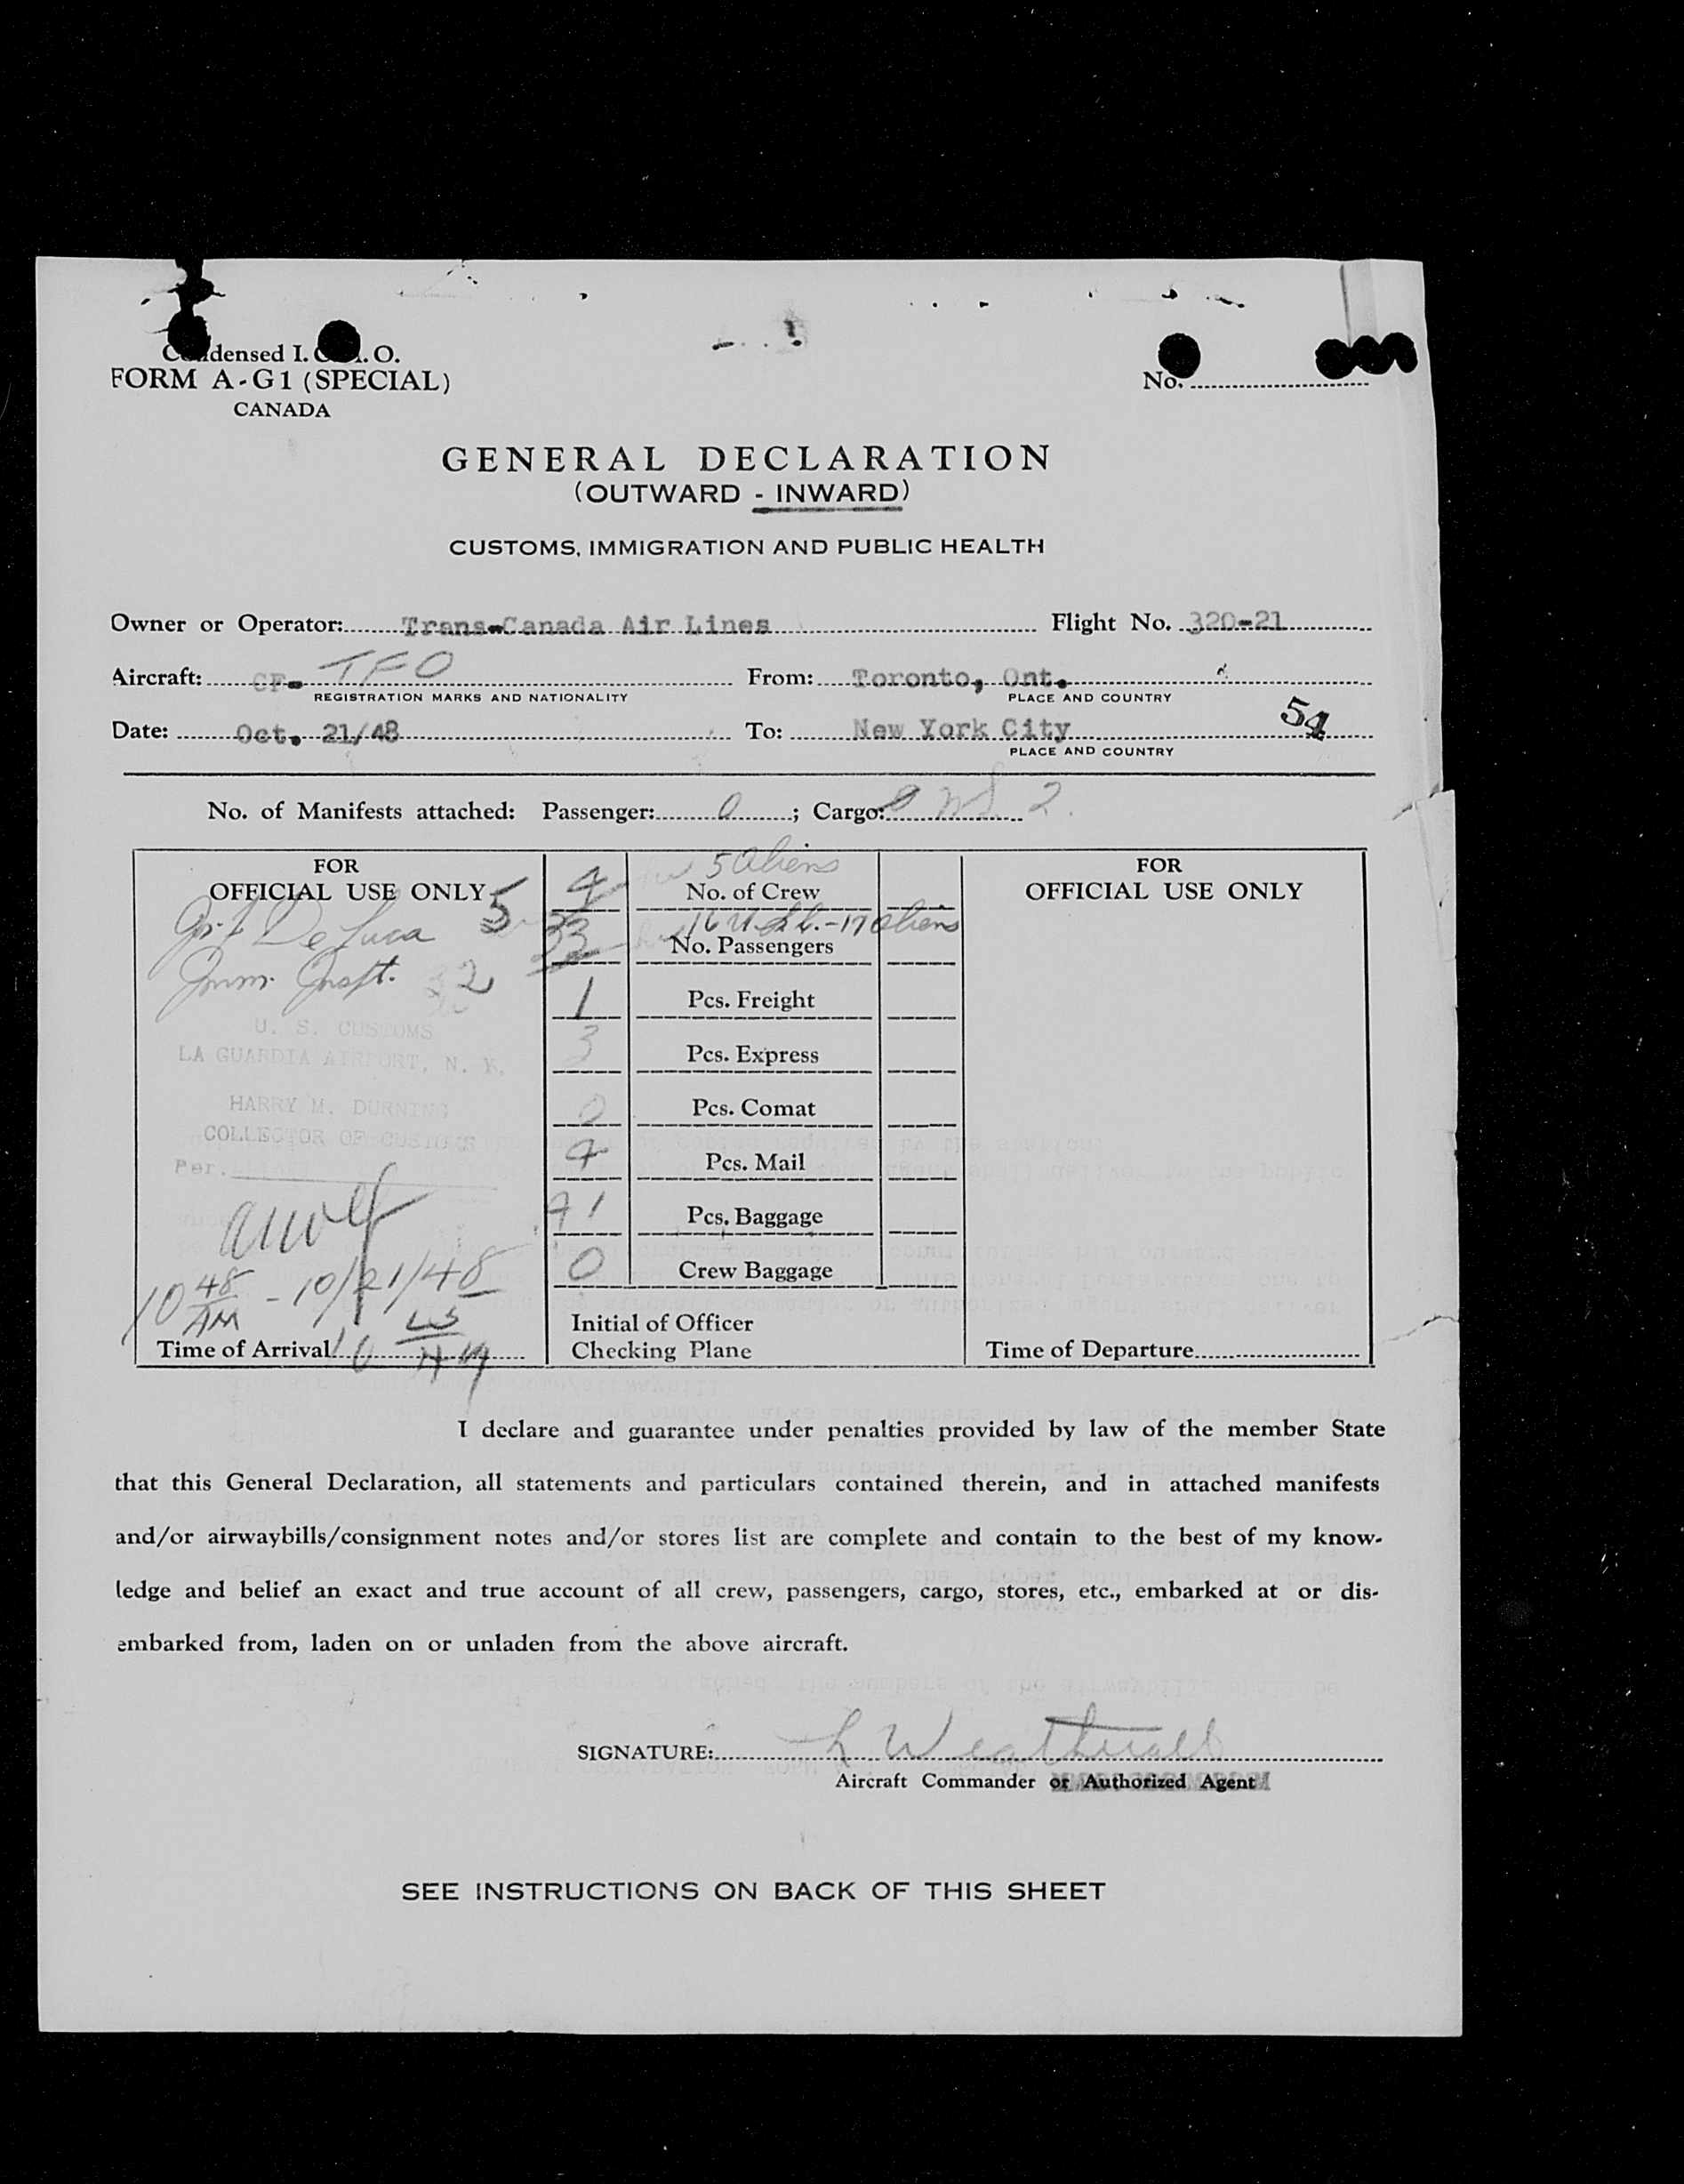 Condensed I. C. A. O.
FORM A-G1 (SPECIAL)
CANADA
No.
GENERAL DECLARATION
(OUTWARD - INWARD)
CUSTOMS, IMMIGRATION AND PUBLIC HEALTH
Owner or Operator: Trans-Canada Air Lines Flight No. 320-21
Aircraft: CF- TFO From: Toronto, Ont.
REGISTRATION MARKS AND NATIONALITY PLACE AND COUNTRY
54
Date: Oct. 21/48 To: New York City
PLACE AND COUNTRY
No. of Manifests attached: Passenger: 0; Cargo: 2.
FOR
OFFICIAL USE ONLY 5
De Luca
Imm. Inspt. 2
U. S. CUSTOMS
LA GUARDIA AIRPORT, N. Y.
HARRY M. DURNING
COLLECTOR OF CUSTOMS
Per.
10 48 AM - 10/21/48
Time of Arrival
5 Aliens
4 No. of Crew
16 - 17 Aliens
33 No. Passengers
1 Pcs. Freight
3 Pcs. Express
0 Pcs. Comat
4 Pcs. Mail
41 Pcs. Baggage
0 Crew Baggage
Initial of Officer
Checking Plane
FOR
OFFICIAL USE ONLY
Time of Departure
I declare and guarantee under penalties provided by law of the member State
that this General Declaration, all statements and particulars contained therein, and in attached manifests
and/or airwaybills/consignment notes and/or stores list are complete and contain to the best of my know-
ledge and belief an exact and true account of all crew, passengers, cargo, stores, etc., embarked at or dis-
embarked from, laden on or unladen from the above aircraft.
SIGNATURE: L Weatherall
Aircraft Commander or Authorized Agent
SEE INSTRUCTIONS ON BACK OF THIS SHEET